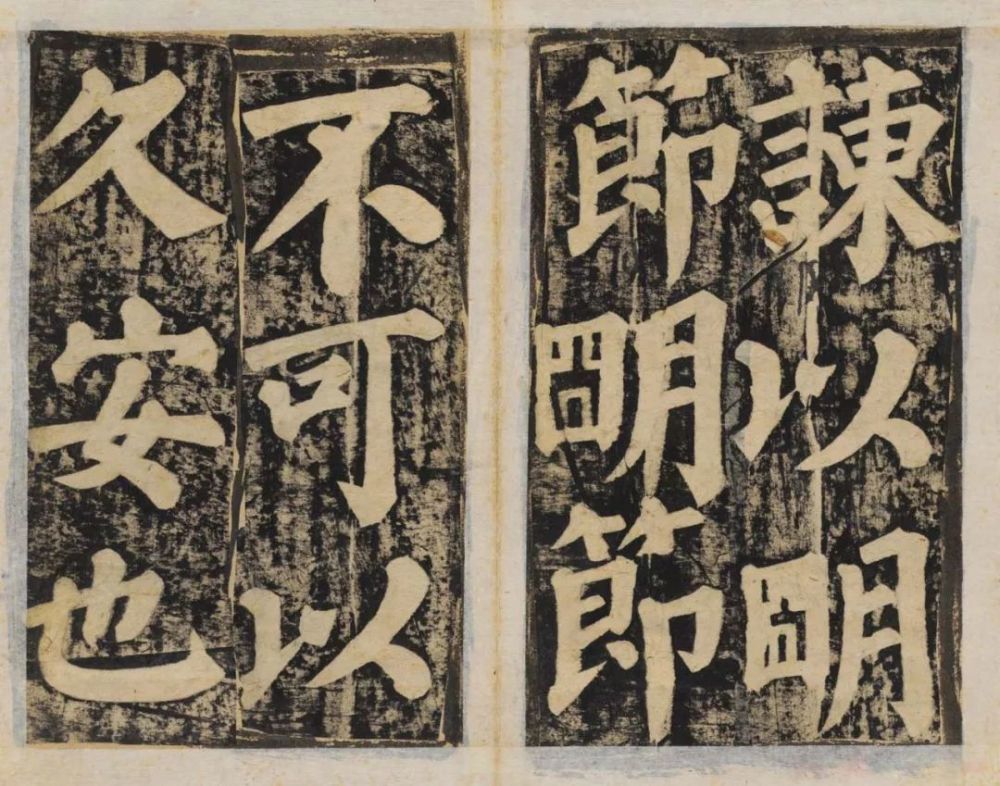 諫以朙
節朙節
不可以
久安也